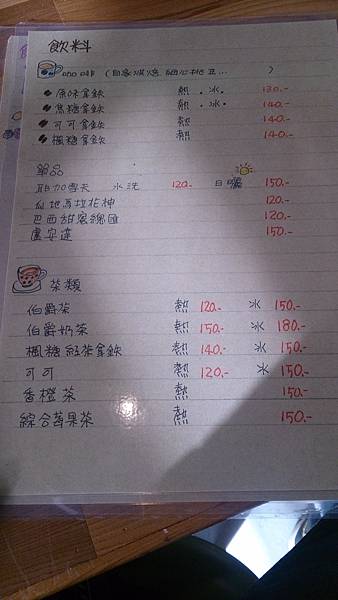 飲料
咖啡 (自家烘焙 細心挑豆... )
原味拿鉄 熱.冰. 130.-
焦糖拿鉄 熱.冰. 140.-
可可拿鉄 熱 140.-
楓糖拿鉄 熱 140.-
單品
耶加雪夫 水洗 120.- 日曬 150.-
瓜地馬拉花神 120.-
巴西甜蜜總匯 120.-
盧安達 150.-
茶類
伯爵茶 熱 120.- 冰 150.-
伯爵奶茶 熱 150.- 冰 180.-
楓糖紅茶拿鉄 熱 140.- 冰 150.-
可可 熱 120.- 冰 150.-
香橙茶 熱 150.-
綜合蘋果茶 熱 150.-